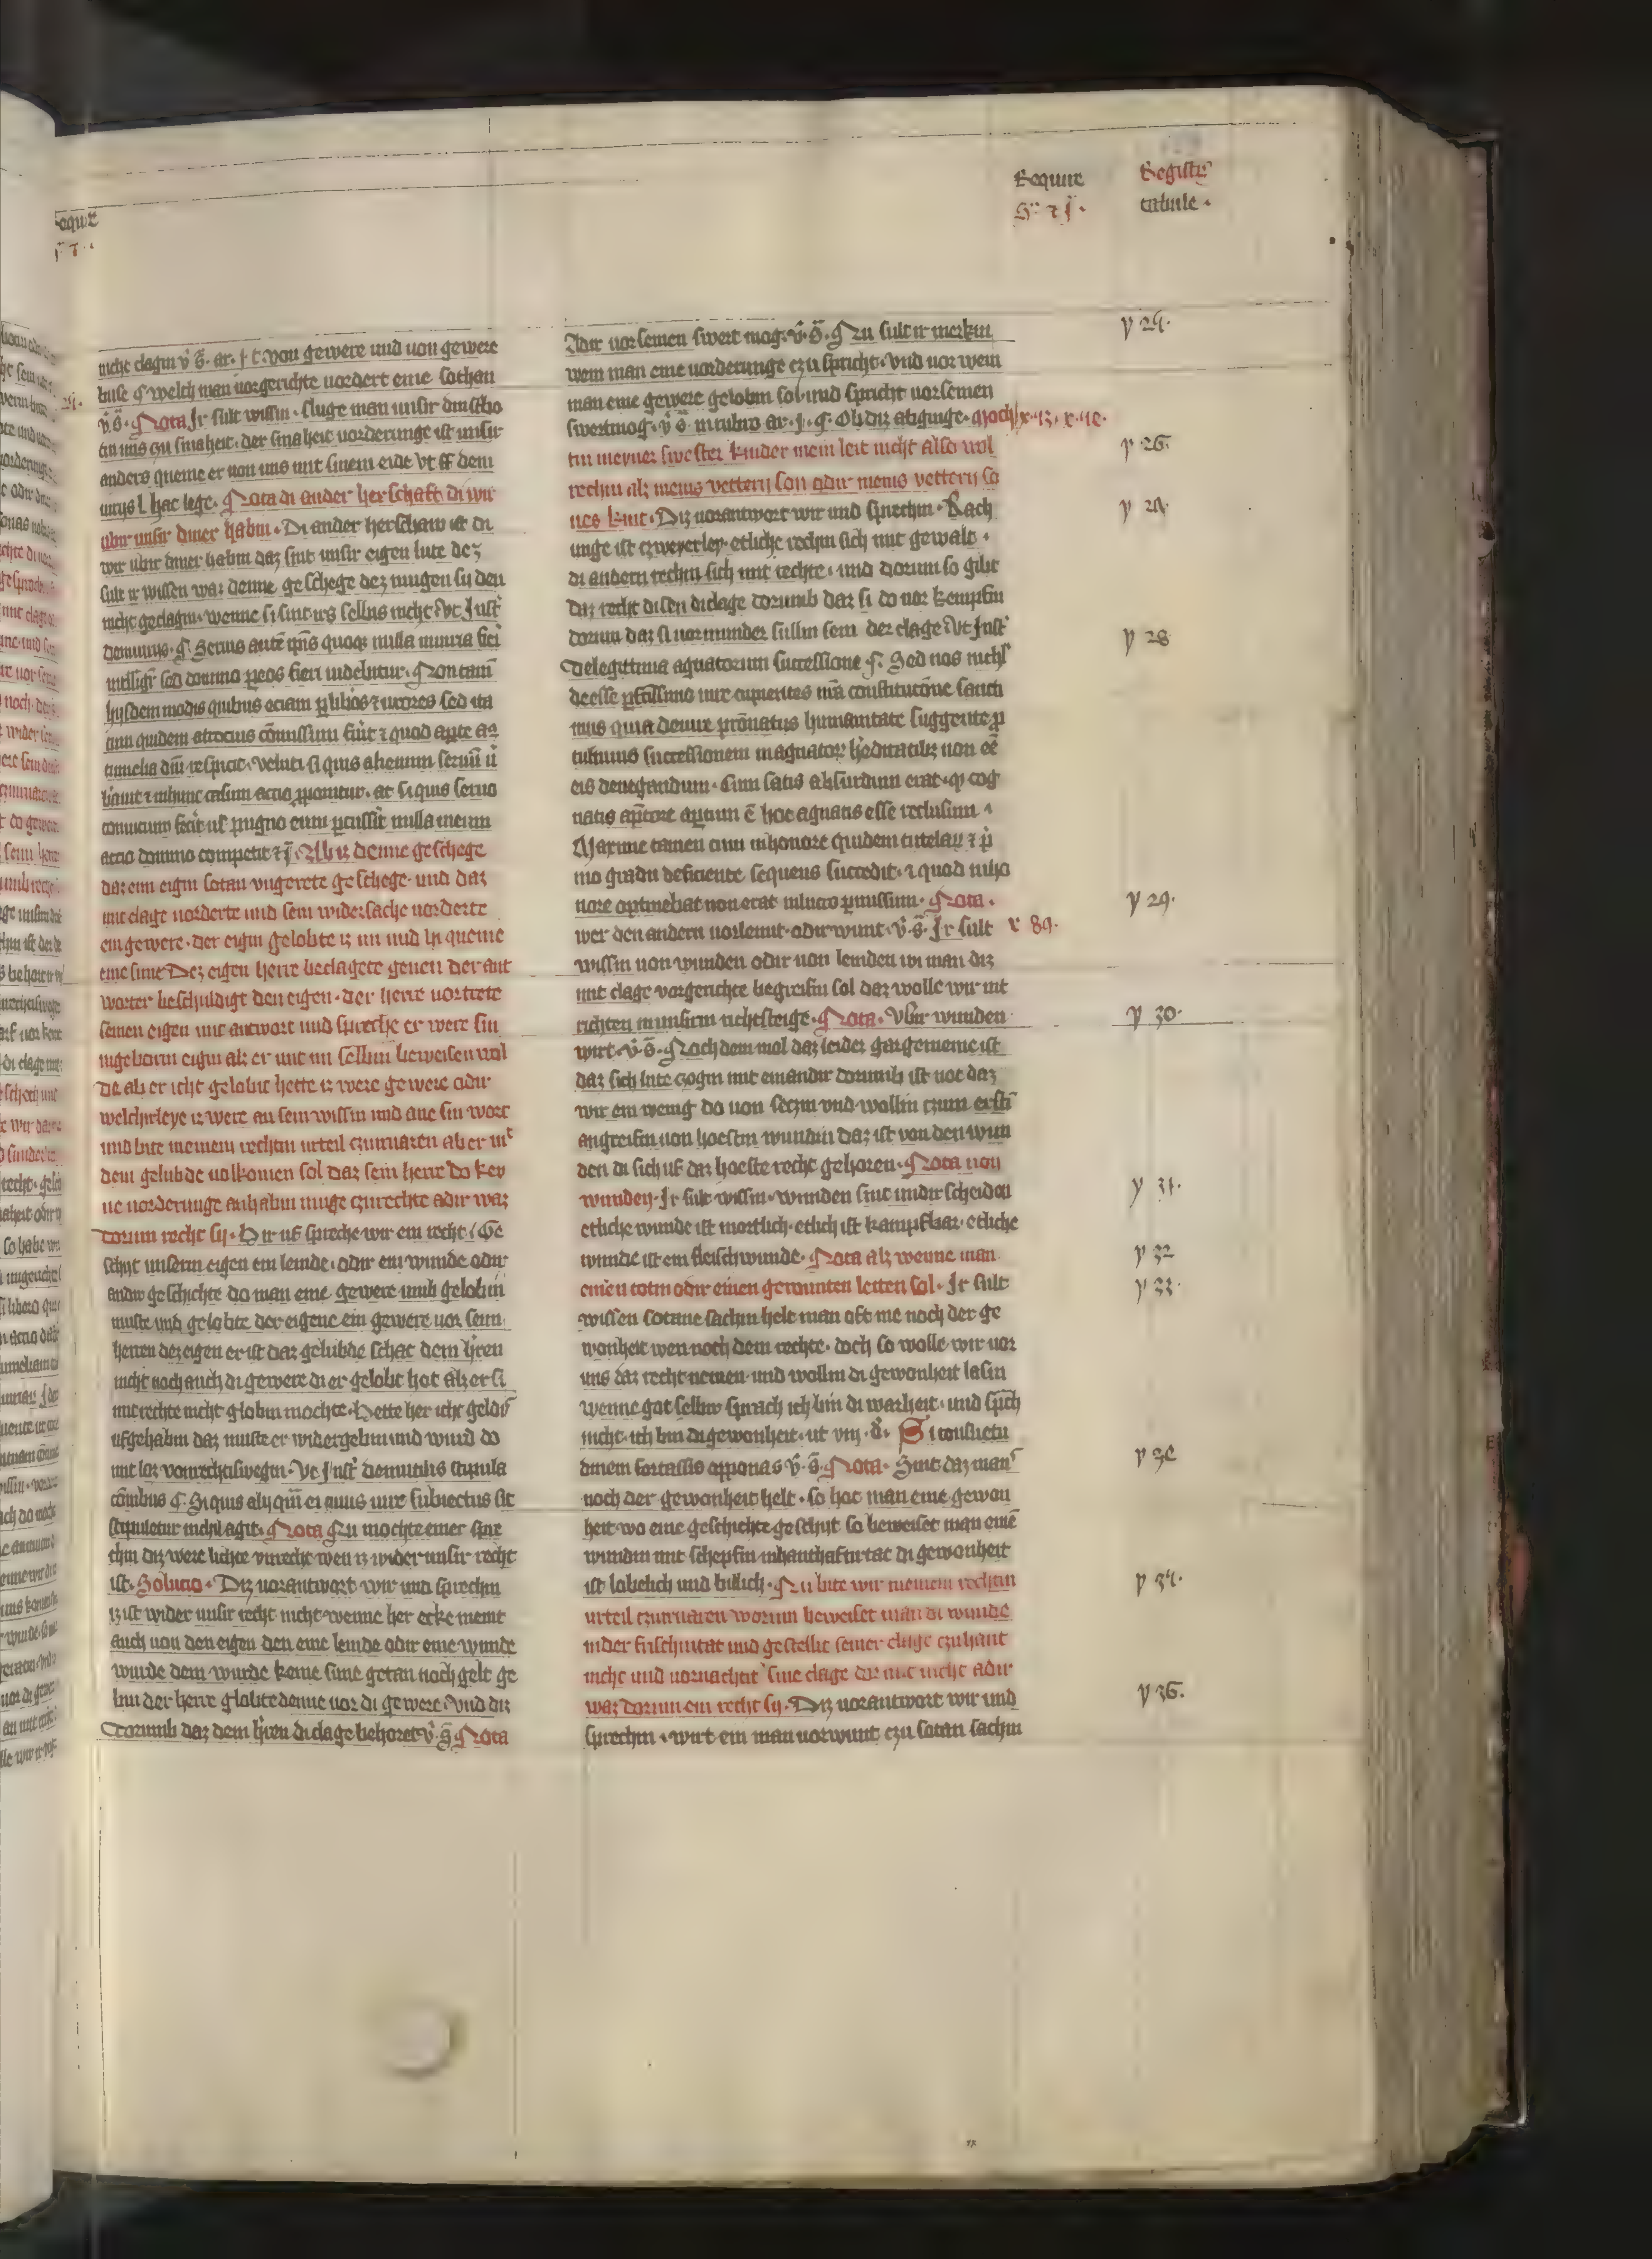 Require
Registrum
tabule .
nicht clagin v̄ s̄. ar. j t von gewere und uon gewere
buse ¶ welch man uorgerichte uordert eine sothan
v̄ s̄. Nota Ir sult wissin. sluge man unsir dinstbo
tin uns czu smaheit. der smaheit uorderunge ist unsir
anders queme er uon uns mit sinem eide vt ff dem
l hac lege. Nota di ander herschaft di wir
ubir unsir diner habin. Di ander herschaw ist di
wir ubir diner habin daz sint unsir eigen lute dez
sult ir wissen waz denne geschege dez mugen si den
nicht geclagin. wenne si sint irs selbis nicht vt Inst
dominus. ¶ Seruis autē
intelligit sed domino p eos fieri uidebitur. Non tam
hijsdem modis quibus eciam p libos ⁊ uxores sed ita
cum quidem atrocius cōmissum fuit ⁊ quod apte ad
tumelia dm̄ respicit. veluti si quis alienum seruū u
⁊ inhunc casum actio pponitur. at si quis seruo
conuicium fecit ul pugno eum pcussit nulla in eum
actio domino competit ⁊ j. Ab iz denne geschege
daz eim eigin sotan vngerete geschege. und daz
mit clage uorderte und sein widersache uorderte
ein gewere. der eigin gelobte iz im und in queme
eine sune Dez eigen herre beclagete genen der ant
worter beschuldigt den eigen. der herre uortrete
seinen eigen mit antwort und spreche er were sin
ingeborin eigin alz er mit im selbin beweisen wol
de ab er icht gelobit hette iz were gewere odir
welchirleye iz were an sein wissin und ane sin wort
und bite meinem rechtin urteil czuuraren ab er mit
dem gelubde uolkomen sol daz sein herre do key
ne uorderunge anhabin muge czurechte adir waz
dorum recht sy. Hir uf spreche wir ein recht. Ge
schyt unserm eigen ein lemde. odir ein wunde odir
andir geschichte do man eine gewere umb gelobin
muste und gelobte der eigene ein gewere uor sein
herren dez eigen er ist daz gelubde schat dem h̄ren
nicht noch auch di gewere di er gelobt hot alz er si
mit rechte nicht globin mochte. Hette her icht geldis
ufgehabin daz muste er widergebin und wurd do
mit loz vonrechtiswegin. Vt Inst de inutilis stipula
cōnibus ¶. Si quis alij qm̄ ei cuius iure subiectus sit
stipuletur nichil agit. Nota Nu mochte einer spre
chin diz were lichte vnrecht wen iz wider unsir recht
ist. Solucio. Diz uorantwort wir und sprechin
iz ist wider unsir recht nicht wenne her ecke meint
auch uon den eigen den eine lemde odir eine wunde
wurde dem wurde keine sune getan noch gelt ge
bin der herre globite denne uor di gewere. Vnd diz
dorumb daz dem h̄ren di clage behoret v̄ s̄ Nota
Adir uor seinen swert mog. v̄ s̄. Nu sult ir merkin
wem man eine uorderunge czu spricht. Vnd uor wem
man eine gewere gelobin sol und spricht uor seinen
swertmog. v̄ s̄ in rubro ar. j. ¶. Ob diz abginge. Moch
tin meyner swester kinder mein leit nicht also wol
rechin alz meins vettern son odir meins vettern so
nes kint. Diz uorantwort wir und sprechin. Rach
unge ist czweyerley. etliche rechin sich mit gewalt.
di andern rechin sich mit rechte. und dorum so gibt
daz recht disen di clage dorumb daz si do uor kempfin
dorum daz si uormunder sullin sein der clage Vt Inst
De legittima agnatorum successione ¶. Sed nos nichil
deesse pfctissimo iure cupientes nra constitucōne sancti
mus quia de iure prōnatus humanitate suggente p
tulimus successionem in agnatorum hereditatibus non ee
eis denegandum. Cum satis absurdum erat. cog
natis aptere aptum ē hoc agnatis esse reclusum.
Maxime tamen cum in honore quidem tutelarum ⁊ p
mo gradu deficiente sequens succedit. ⁊ quod in ho
nore optinebat non erat in lucro pmissum. Nota.
wer den andern uorlemt. odir wunt. v̄ s̄. Ir sult
wissin uon wunden odir uon lemden wi man diz
mit clage vorgerichte begreifin sol daz wolle wir uit
richten in unsirm richtsteige. Nota. Vbir wunden
wirt. v̄ s̄. Noch dem mol daz leider gar gemeine ist
daz sich lute czogin mit einandir dorumb ist not daz
wir ein wenig do uon seczin vnd wollin czum ersti
angreifin uon hoestin wundin daz ist von den wun
den di sich uf daz hoeste recht gehoren. Nota uon
wunden. Ir sult wissin. wunden sint undir scheiden
etliche wunde ist mortlich. etlich ist kampfbar. etliche
wunde ist ein fleischwunde. Nota alz wenne man
einen totin odir einen gewunten leiten sol. Ir sult
wissen sotane sachin helt man oft me noch der ge
wonheit wen noch dem rechte. doch so wolle wir uor
uns daz recht nemen. und wollin di gewonheit lasin
wenne got selbir sprach ich bin di warheit. und sprch
nicht. ich bin di gewonheit. ut viij. d. Si consuetu
dinem fortassis opponas v̄ s̄. Nota. Sint daz man
noch der gewonheit helt. so hot man eine gewon
heit wo eine geschichte geschyt so beweiset man eine
wundin mit schepfin inhanthaftirtat di gewonheit
ist lobelich und billich. Nu bite wir meinem rechtin
urteil czuuraren worum beweiset man di wunde
in der frischintat und gestellit seiner clage czuhant
nicht und uornachat sine clage do mit nicht adir
waz dorum ein recht sy. Diz uorantwort wir und
sprechin. wirt ein man uorwunt czu sotan sachin
y 25.
y 26.
y 28
y 29.
x 89.
y 30.
y 31.
y 32
y 33.
y 36.